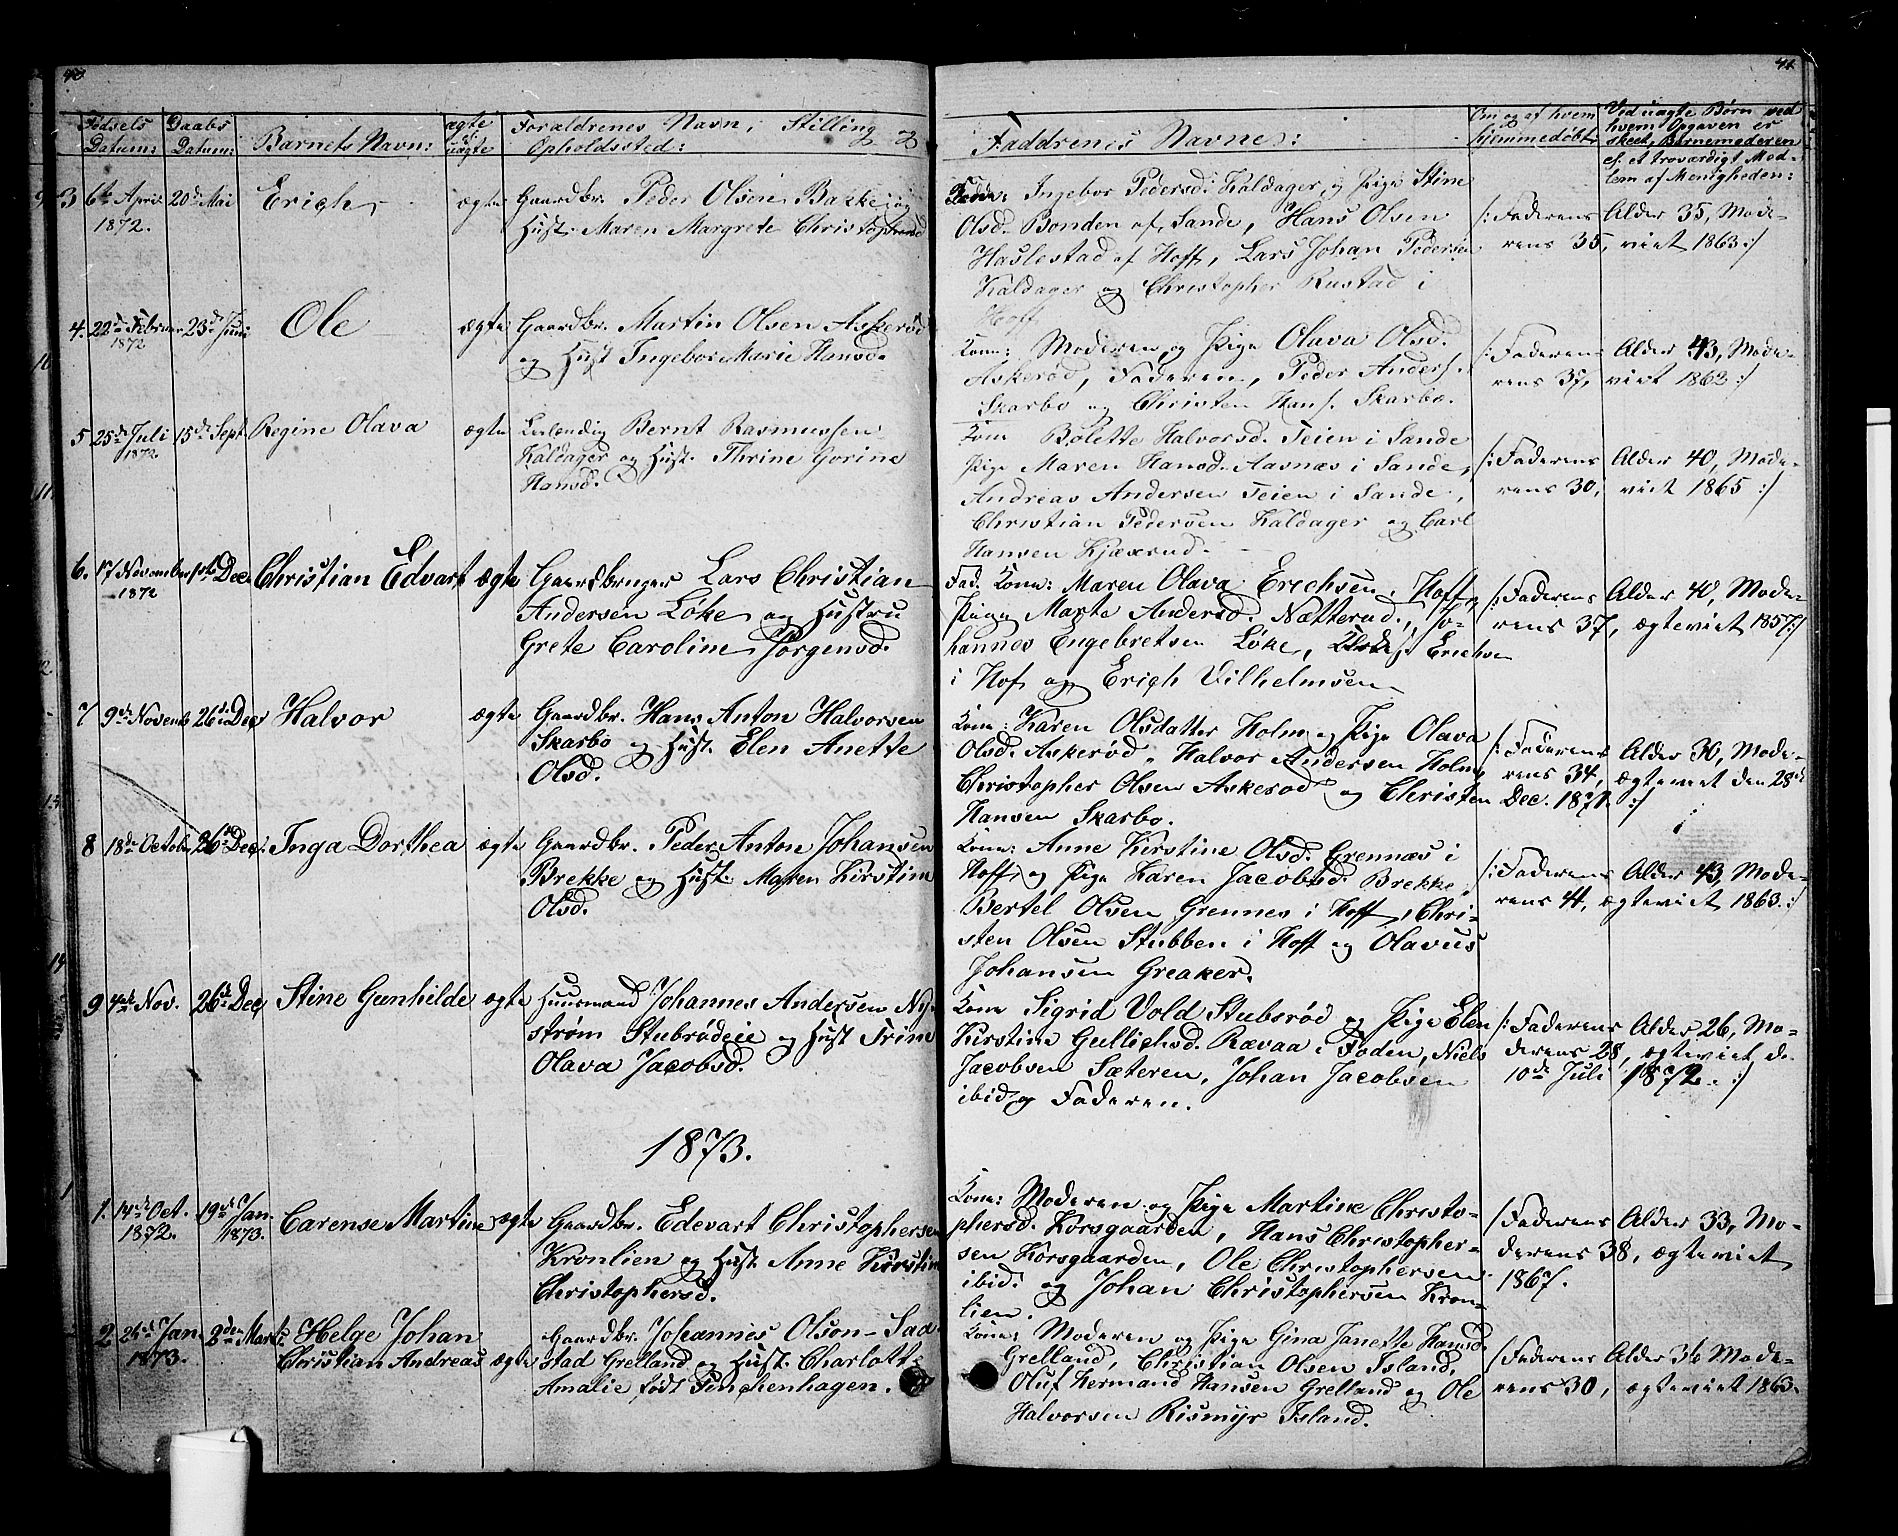 40
Fødsels Datum:
Daabs Datum:
Barnets Navn:
ægte el. uægte
Forældrenes Navn, Stilling og
Opholdssted:
3 6te April 20de Mai Erich ægte Gaardbr. Peder Olsen Bakke og
1872. Hust. Maren Margrete Christophersd
4. 22de Februar 23de Juni Ole ægte Gaardbr. Martin Olsen Askerød
1872 og Hust Ingebor Marie Hansd.
5 25de Juli 15de Sept. Regine Olava ægte Bernt Rasmussen
1872 Kaldager og Hust. Thrine Gorine
Hansd.
6. 17 November 1ste Dec. Christian Edvart ægte Gaardbruger Lars Christian
1872 Andersen Løke og Hustru
Grete Caroline Jørgensd.
7 9de Novemb 26de Dec Halvor ægte Gaardbr. Hans Anton Halvorsen
Skarbo og Hust. Elen Anette
Olsd.
8 18de Octobr 26de Dec: Inga Dorthea ægte Gaardbr. Peder Anton Johansen
Brekke og Hust. Maren Kirstine
Olsd.
9 4de Nov. 26de Dec Stine Gunhilde ægte Huusmand Johannes Andersen Ny-
strøm Stubrødeie og Hust Trine
Olava Jacobsd.
1873.
1. 14de Oct. 19de Jan. Carense Martine ægte Gaardbr. Edevart Christophersen
1872. 1873. Kronlien og Hust. Anne Kirstine
Christophersd.
2 26de Jan. 2den Marts Helge Johan Gaardbr. Johannes Olson Sad-
1873. Christian Andreas ægte stad Grelland og Hust. Charlott
Amalie født Penchenhagen.
41
Faddrenes Navne:
Om og af hvem hjemmedøbt
Ved uægte Børn ved
hvem Opgaven er
skeet, Barnemoderen
el. et troværdigt Med-
lem af Menigheden:
Ingebor Pedersd. Kaldager, og Pige Stine
Olsd. Bonden af Sande, Hans Olsen /: Faderens Alder 35, Mode-
Haslestad af Hoff, Lars Johan Pedersen rens 35, viet 1863 :/
Kaldager og Christopher Rustad i
Hoff
Kone: Moderen, og Pige Olava Olsd. /: Faderens Alder 43, Mode-
Askerød, Faderen, Peder Anders. rens 37, viet 1862 :/
Skarbo og Christen Hans. Skarbo.
Kone Bolette Halvorsd. Teien i Sande
Pige Maren Hansd. Aasnæs i Sande, /: Faderens Alder 40, Mode-
Andreas Andersen Teien i Sande, rens 30, viet 1865 :/
Christian Pedersen Kaldager og Carl
Hansen Kjæxrud.
Fad. Kone: Maren Olava Erichsen, Hoff, /: Faderens Alder 40, Mode-
Pige Marte Andersd. Nætterud, Jo- rens 37, ægteviet 1857 :/
hannes Engebretsen Løke, Erichsen
i Hof og Erich Vilhelmsen
Kone: Karen Olsdatter Holm og Pige Olava /: Faderens Alder 30, Mode-
Olsd. Askerød, Halvor Andersen Holm, rens 34, ægteviet den 28de
Christopher Olsen Askerød og Christen Dec. 1871. :/
Hansen Skarbo.
Kone: Anne Kirstine Olsd. Grennæs i
Hoff, og Pige Karen Jacobsd. Brekke, /: Faderens Alder 43, Mode-
Bertel Olsen Grennes i Hoff, Chri- rens 41, ægteviet 1863. :/
sten Olsen Stubben i Hoff og Olavus
Johansen Greaker.
Kone Sigrid Vold Stubsrød og Pige Elen /: Faderens Alder 26, Mo-
Kirstine Gullichsd. Rævaa i Foden, Niels derens 28, ægteviet de
Jacobsen Sæteren, Johan Jacobsen 10de Juli 1872. :/
ibid og Faderen.
Kone: Moderen og Pige Martine Christo-
phersd. Korsgaarden, Hans Christopher- /: Faderens Alder 33, Mo-
sen Korsgaarden, Ole Christophersen derens 38, ægteviet
ibid. og Johan Christophersen Kron- 1867.
lien.
Kone: Moderen og Pige Gina Janette Hansd.
Grelland, Christian Olsen Island, /: Faderens Alder 36 Mode-
Oluf Hermand Hansen Grelland og Ole rens 30, ægteviet 1863.
Halvorsen Rismyr Island.